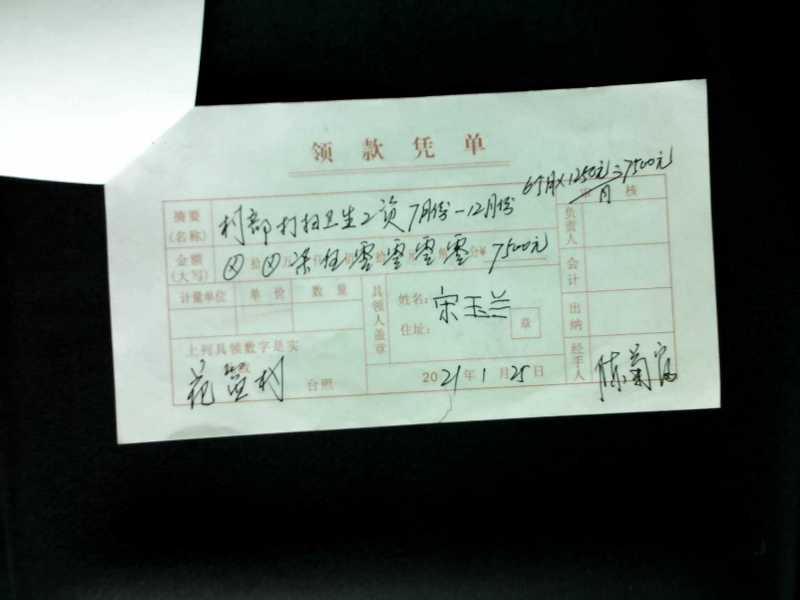 领款凭单
6个月×1250元/月=7500元
摘要(名称) 村部打扫卫生工资7月份-12月份 审核
金额(大写) ⊗拾⊗万柒仟伍佰零拾零元零角零分¥7500元 负责人
计量单位 单价 数量 具领人盖章 姓名: 宋玉兰 会计
住址: 章 出纳
上列具领数字是实
此致
花 村 台照 2021年1月25日 经手人 陈菊